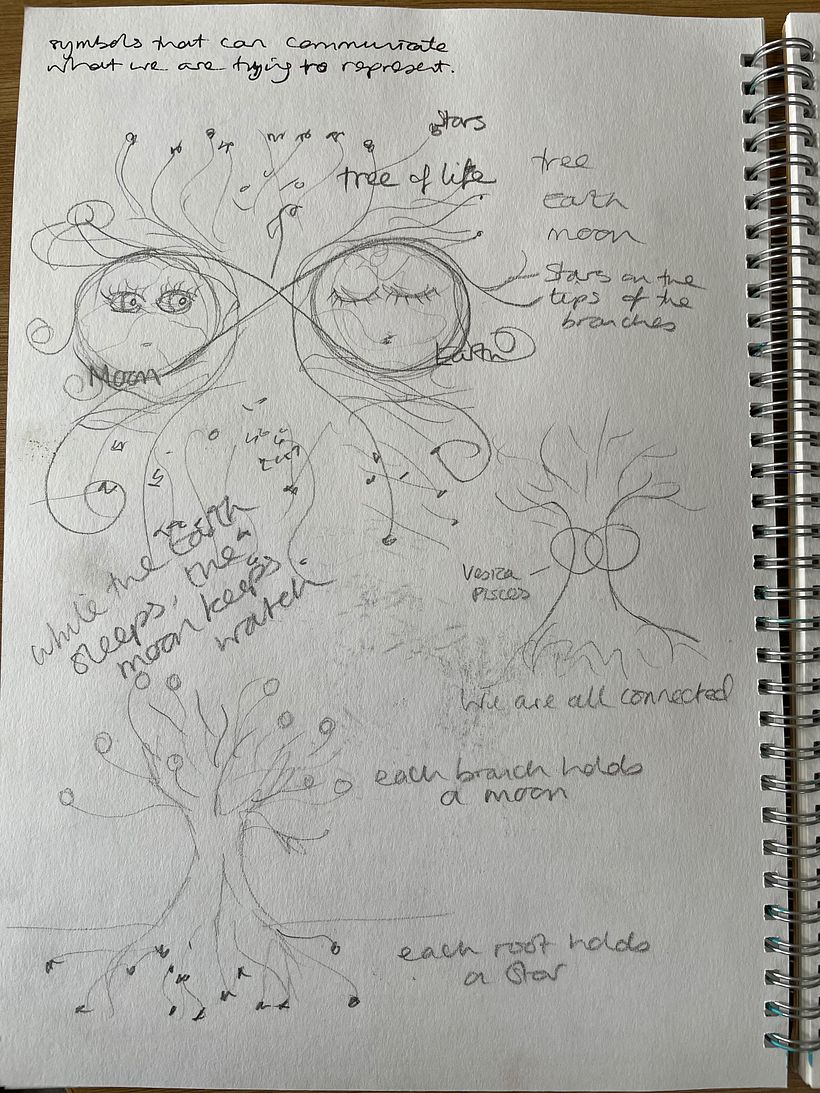 symbols that can communicate
what we are trying to represent.
stars
tree of life
tree
Earth
moon
Stars on the
tips of the
branches
Moon
Earth
while the Earth
sleeps, the
moon keeps
watch
Vesica
Pisces
We are all connected
each branch holds
a moon
each root holds
a star